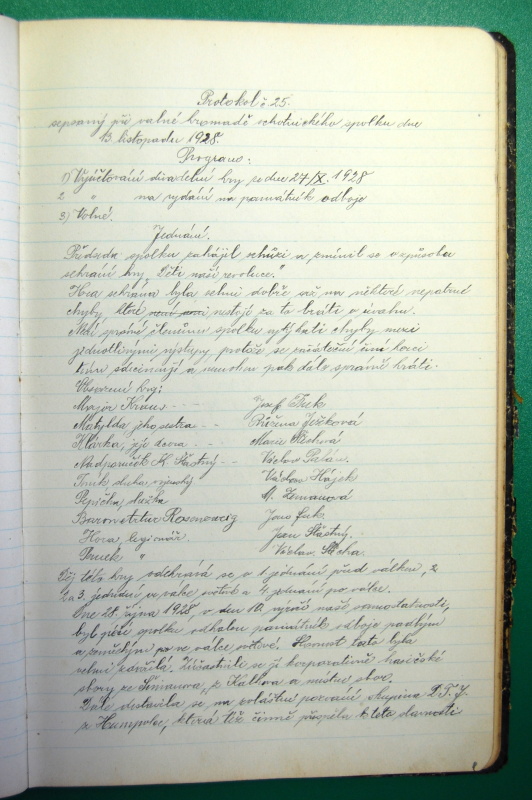 Protokol č 25.
sepsaný při valné hromadě ochotnického spolku dne
13. listopadu 1928.
Program:
1) Vyúčtování divadelní hry ze dne 27/X. 1928
2 " na vydání na památník odboje
3) Volné.
Jednání.
Předseda spolku zahájil schůzi a zmínil se o způsobu
sehrání hry "Děti naší revoluce."
Hra sehrána byla velmi dobře až na některé nepatrné
chyby které nestojí za to bráti v úvahu.
členům spolku vytýkati chyby mezi
jednotlivými výstupy, protože se
a pak dále správně hráti.
Obsazení hry:
Major Kraus - - Josef Fuk
Matylda jeho sestra - - Růžena Ježková
Klárka, její dcera - - Marie
Nadporučík K. Šťastný - - Václav
Fuk sluha vojenský Václav Hájek
Pepička, služka M. Zemanová
Baron Artur Rosenzeig Jan Fuk.
Hora, legionář Jan Šťastný.
" Václav
Děj této hry odehrává se v 1. jednání před válkou, v
2 a 3. jednání ve válce světové a 4. jednání po válce.
Dne 28. října 1928, v den 10. výročí naší samostatnosti,
byl péčí spolku odhalen památník odboje padlým
a zemřelým ve válce světové. Slavnost tato byla
velmi zdařilá. Zúčastnili se jí korporativně hasičské
sbory ze z Kalhova a místní sbor.
Dále dostavila se na zvláštní pozvání skupina D.T.J.
z Humpolce, která též činně přispěla k této slavnosti